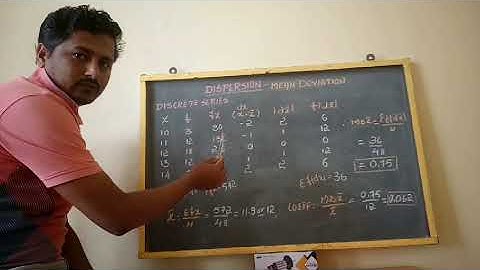 DISPERSION - MEAN DEVIATION
DISCRETE SERIES
x f fx dx (x-x̄) |dx| f|dx|
10 3 30 -2 2 6
11 12 -1 1 12
12 18 0 0 0
13 12 1 1 12
14 2 2 6
Σf|dx| = 36
M.D x̄ = Σf|dx| / N
= 36 / 48
= 0.75
x̄ = Σfx / N = 572 / 48 = 11.9 or 12,
COEFF. = M.D x̄ / x̄ = 0.75 / 12 = 0.062